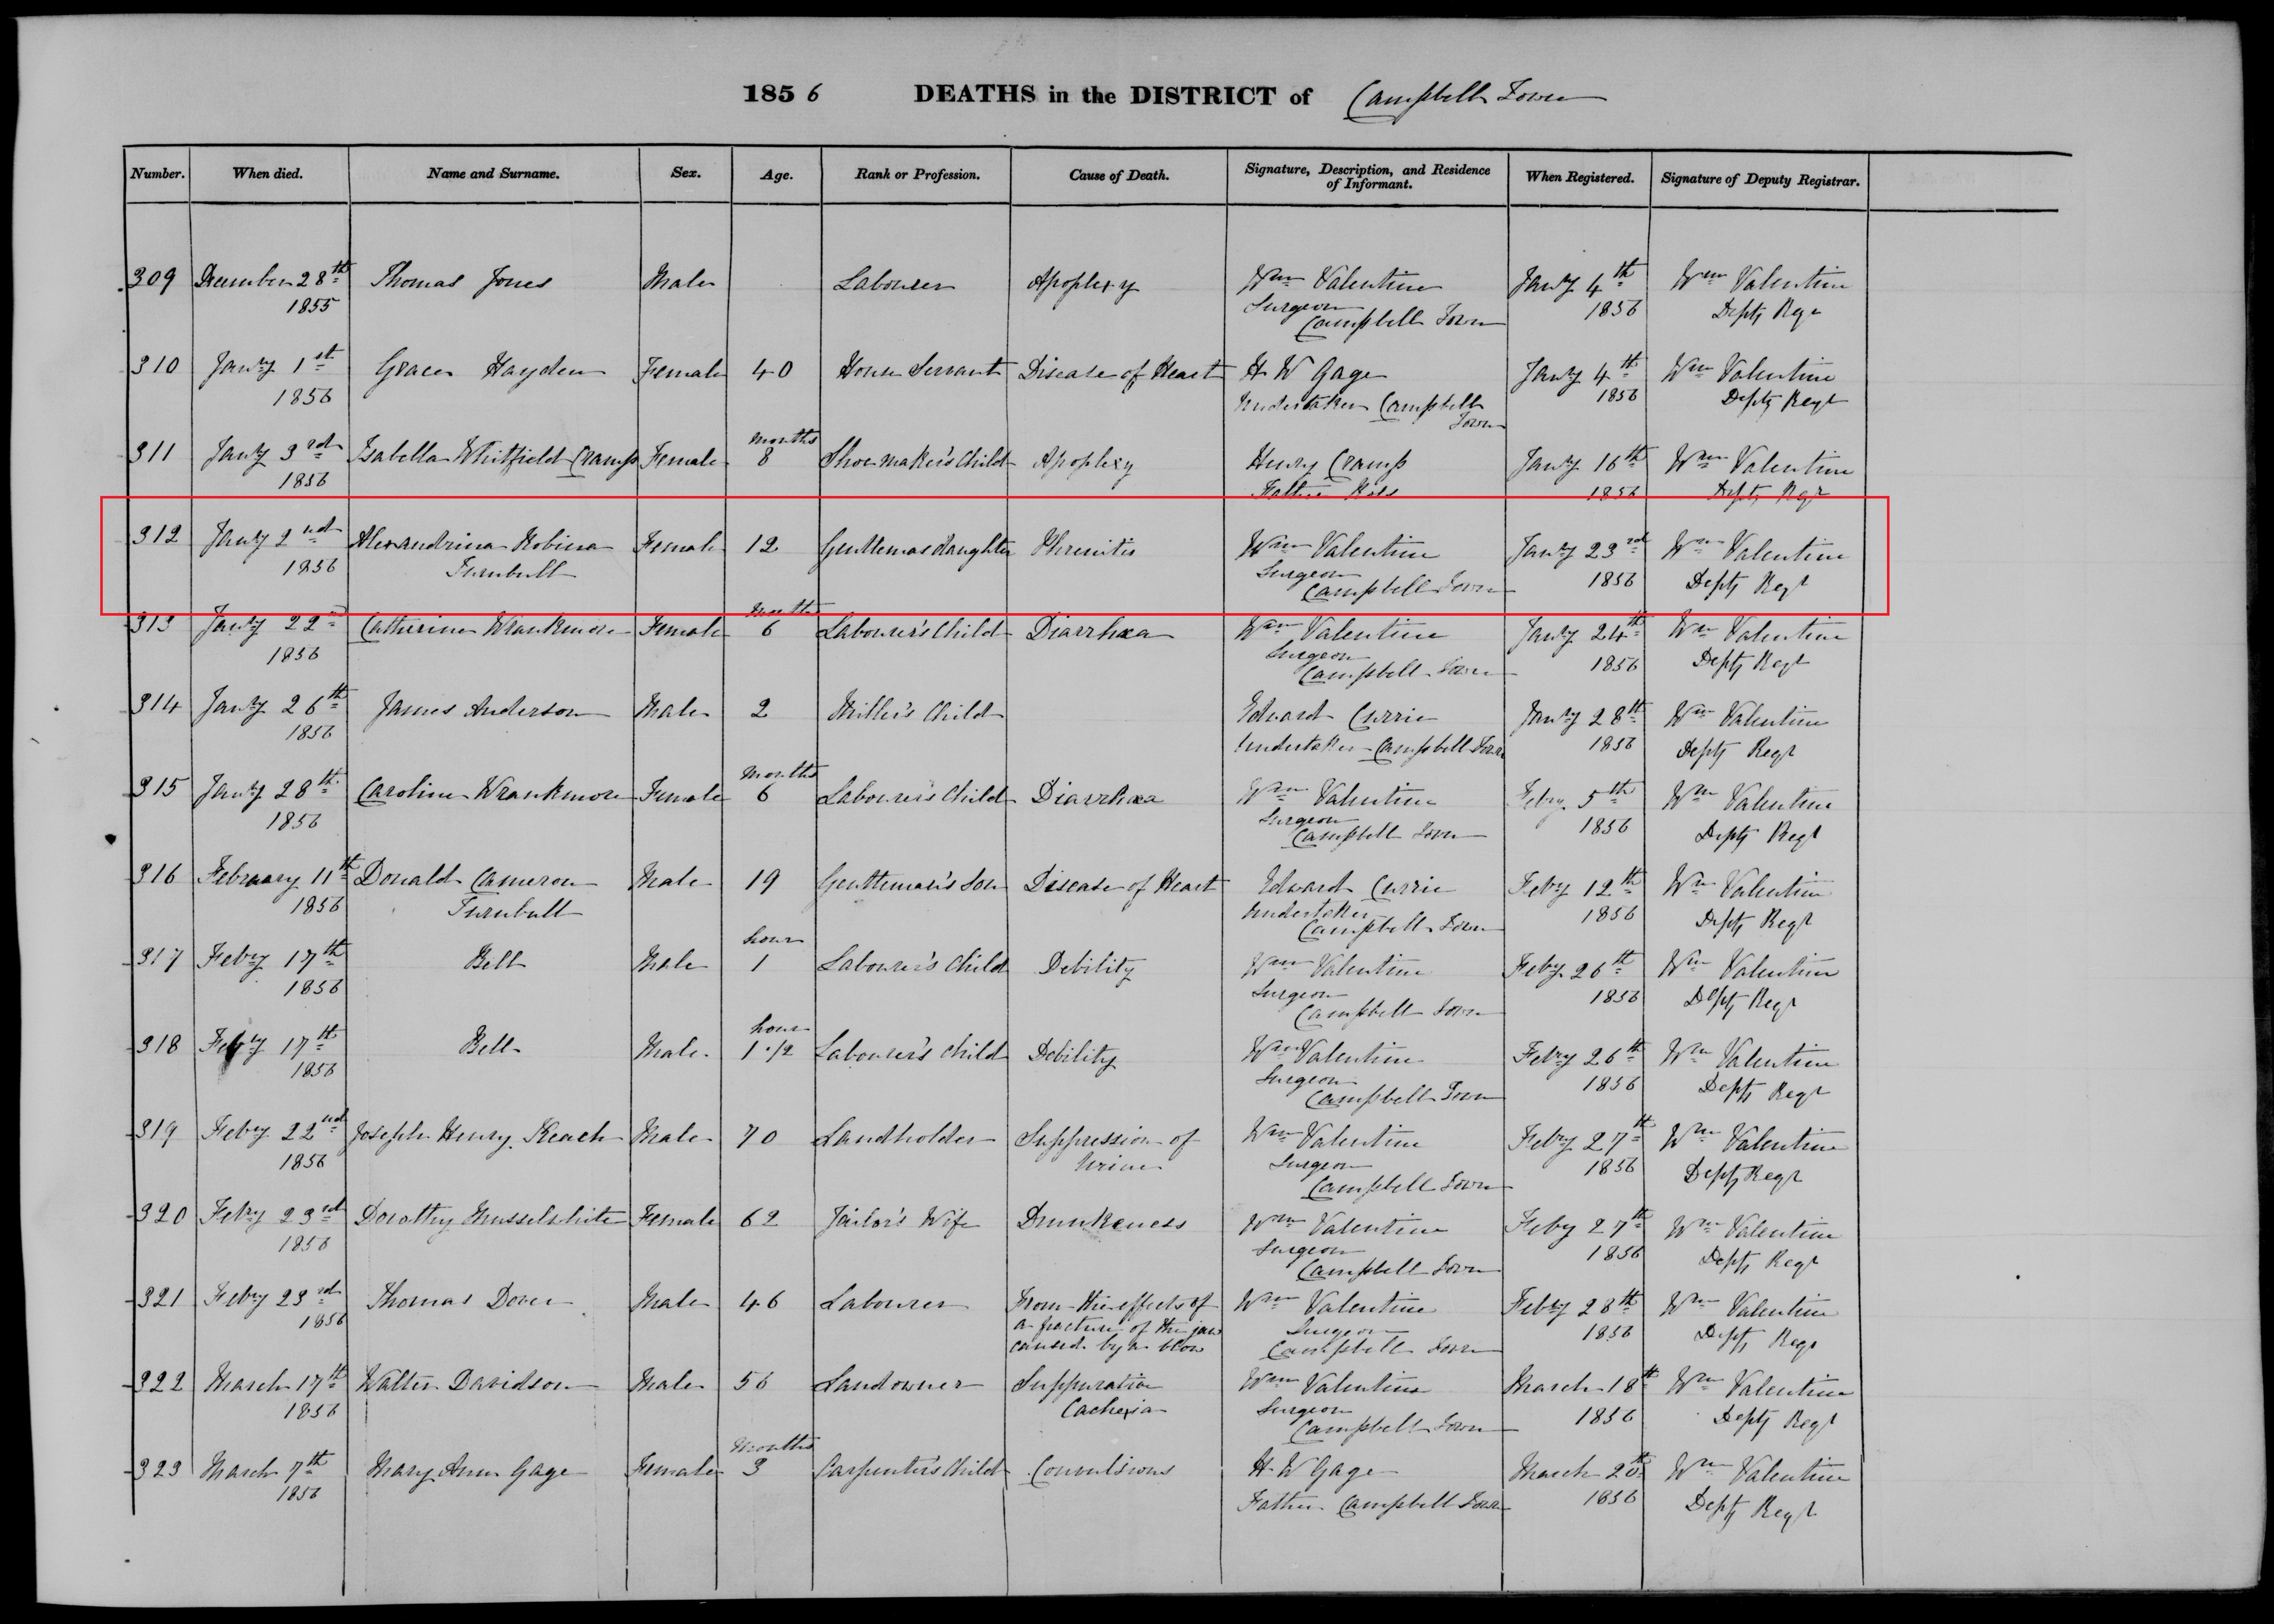 1856 DEATHS in the DISTRICT of Campbell Town
Number. When died. Name and Surname. Sex. Age. Rank or Profession. Cause of Death. Signature, Description, and Residence of Informant. When Registered. Signature of Deputy Registrar.
309 December 28th Thomas Jones Male Labourer Apoplexy Wm Valentine Jany 4th Wm Valentine
1855 Surgeon 1856 Depty Regr
Campbell Town
310 Jany 1st Grace Hayden Female 40 House Servant Disease of Heart H W Gage Jany 4th Wm Valentine
1856 Undertaker Campbell 1856 Depty Regr
Town
months
311 Jany 3rd Isabella Whitfield Cramp Female 8 Shoemaker's Child Apoplexy Henry Cramp Jany 16th Wm Valentine
1856 Father 1856 Depty Regr
312 Jany 2nd Alexandrina Robina Female 12 Gentlemas daughter Phrenitis Wm Valentine Jany 23rd Wm Valentine
1856 Turnbull Surgeon 1856 Depty Regr
Campbell Town
months
313 Jany 22nd Catherine Wrankmore Female 6 Labourer's Child Diarrhœa Wm Valentine Jany 24th Wm Valentine
1856 Surgeon 1856 Depty Regr
Campbell Town
314 Jany 26th James Anderson Male 2 Miller's Child Edward Currie Jany 28th Wm Valentine
1856 Undertaker Campbell Town 1856 Depty Regr
months
315 Jany 28th Caroline Wrankmore Female 6 Labourer's Child Diarrhœa Wm Valentine Feby 5th Wm Valentine
1856 Surgeon 1856 Depty Regr
Campbell Town
316 February 11th Donald Cameron Male 19 Gentleman's Son Disease of Heart Edward Currie Feby 12th Wm Valentine
1856 Turnbull Undertaker 1856 Depty Regr
Campbell Town
hour
317 Feby 17th Bell Male 1 Labourer's Child Debility Wm Valentine Feby 26th Wm Valentine
1856 Surgeon 1856 Depty Regr
Campbell Town
hour
318 Feby 17th Bell Male 1 1/2 Labourer's Child Debility Wm Valentine Feby 26th Wm Valentine
1856 Surgeon 1856 Depty Regr
Campbell Town
319 Feby 22nd Joseph Henry Keach Male 70 Landholder Suppression of Wm Valentine Feby 27th Wm Valentine
1856 Urine Surgeon 1856 Depty Regr
Campbell Town
320 Feby 23rd Dorothy Musselwhite Female 62 Jailor's Wife Drunkeness Wm Valentine Feby 27th Wm Valentine
1856 Surgeon 1856 Depty Regr
Campbell Town
321 Feby 23rd Thomas Dover Male 46 Labourer From the effects of Wm Valentine Feby 28th Wm Valentine
1856 a fracture of the jaw Surgeon 1856 Depty Regr
caused by a blow Campbell Town
322 March 17th Walter Davidson Male 56 Landowner Suppuration Wm Valentine March 18th Wm Valentine
1856 Cachexia Surgeon 1856 Depty Regr
Campbell Town
months
323 March 7th Mary Ann Gage Female 3 Carpenter's Child Convulsions H W Gage March 20th Wm Valentine
1856 Father Campbell Town 1856 Depty Regr